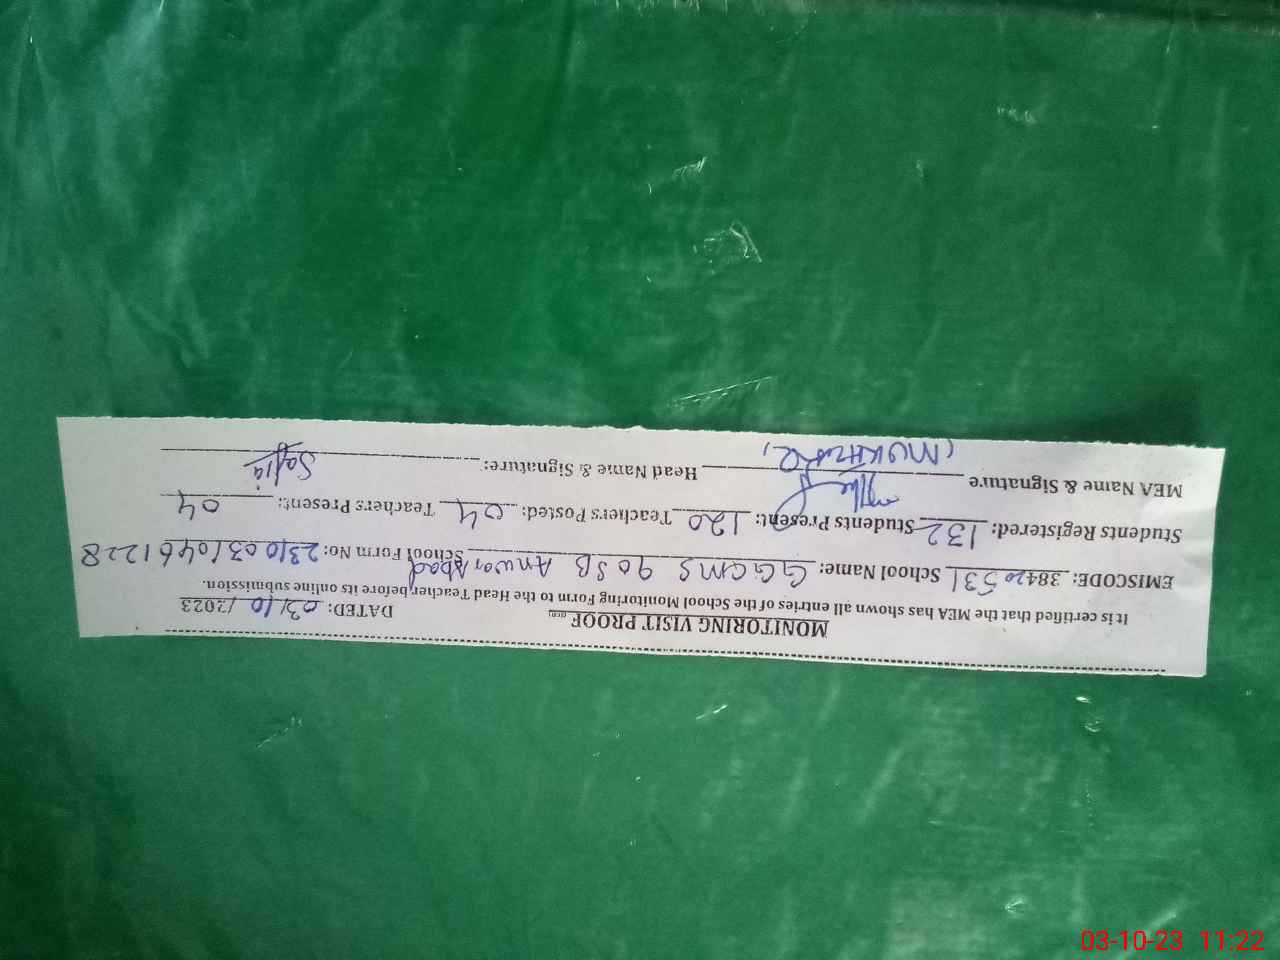 MONITORING VISIT PROOF
DATED: 03/10/2023
It is certified that the MEA has shown all entries of the School Monitoring Form to the Head Teacher before its online submission.
EMISCODE: 38420531 School Name: GGCMS 90 SB Anwar Abad School Form No: 2310031046 1228
Students Registered: 132 Students Present: 120 Teachers Posted: 04 Teachers Present: 04
MEA Name & Signature Head Name & Signature: Safia
03-10-23 11:22